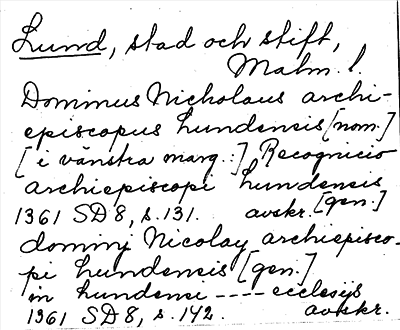 Lund, stad och stift,
Malm. l.
Dominus Nicholaus archi-
episcopus Lundensis [nom.]
[i vänstra marg.:] Recognicio
archiepiscopi Lundensis
1361 SD 8, s. 131. avskr. [gen.]
dominj Nicolay archiepisco-
pi Lundensis [gen.]
in Lundensi ---- ecclesijs
1361 SD 8, s. 142. avskr.